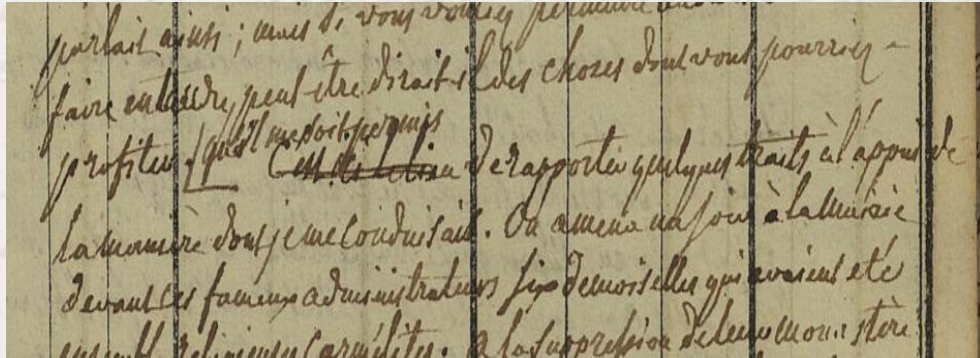 parlait ainsi ; mais si vous vouliez permettre
faire entendre, peut-être dirait-il des choses dont vous pourriez
profiter. qu'il me soit permis
C'est ici le lieu de rapporter quelques traits à l'appui de
la manière dont je me conduisais. On amena un jour à la Mairie
devant ces fameux administrateurs six demoiselles qui avaient été
ensemble religieuses Carmélites. a la suppression de leur monastère